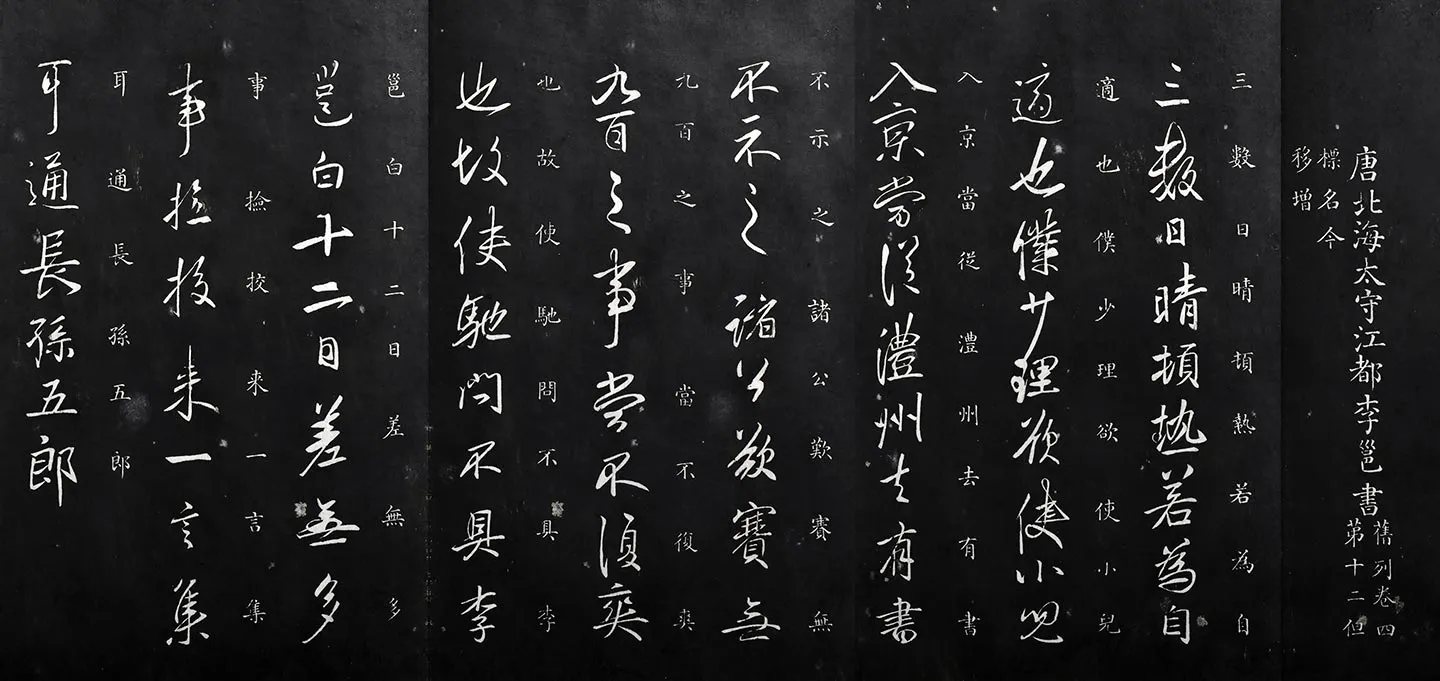 唐北海太守江都李邕書
舊列卷四
第十二但
標名今
移增
三數日晴頓熱若為自
三數日晴頓熱若為自
適也僕少理欲使小兒
適也僕少理欲使小兒
入京當從澧州去有書
入京當從澧州去有書
不示之諸公歎賽無
不示之諸公歎賽無
九百之事當不復爽
九百之事當不復爽
也故使馳問不具李
也故使馳問不具李
邕白十二日差無多
邕白十二日差無多
事撿挍來一言集
事撿挍来一言集
耳通長孫五郎
耳通長孫五郎